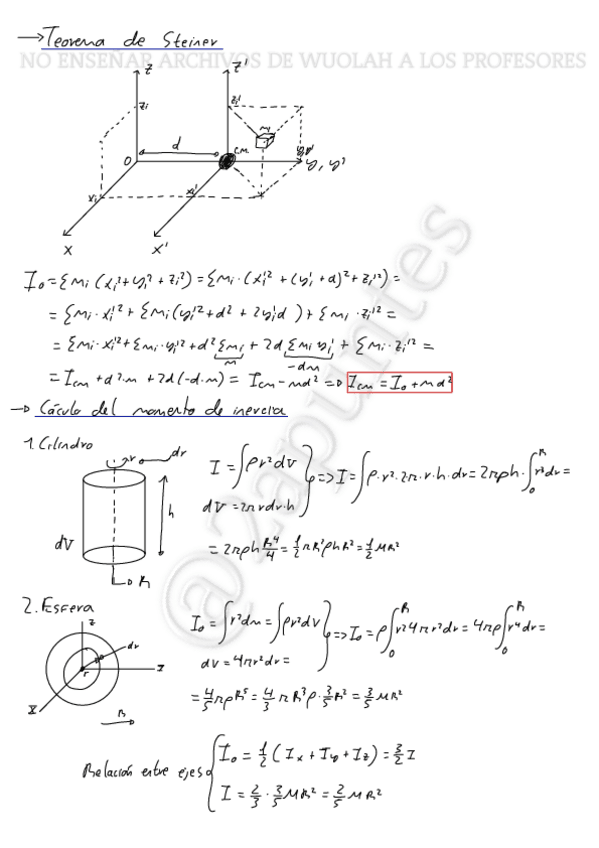 → Teorema de Steiner
NO ENSEÑAR ARCHIVOS DE WUOLAH A LOS PROFESORES
z z'
zi zi'
d mi
O C.M. y, y'
xi xi'
x x'
I₀ = Σmi (xi² + yi² + zi²) = Σmi · (xi'² + (yi' + d)² + zi'²) =
= Σmi · xi'² + Σmi (yi'² + d² + 2yi'd) + Σmi · zi'² =
= Σmi · xi'² + Σmi · yi'² + d² Σmi + 2d Σmi yi' + Σmi · zi'² =
m -dm
= Icm + d² · m + 2d(-d·m) = Icm - md² => Icm = I₀ + md²
→ Cálculo del momento de inercia
1. Cilindro
r dr
h
dV
R
I = ∫ρr²dV
dV = 2πrdr·h
=> I = ∫ρ·r²·2π·r·h·dr = 2πρh · ∫₀ᴿ r³dr =
= 2πρh R⁴/4 = 1/2 πR²ρhR² = 1/2 MR²
2. Esfera
z
dr
r
R
I₀ = ∫r²dm = ∫ρr²dV
dv = 4πr²dr =
=> I₀ = ρ∫₀ᴿ r²4πr²dr = 4πρ∫₀ᴿ r⁴dr =
= 4/5 πρR⁵ = 4/3 πR³ρ · 3/5 R² = 3/5 MR²
Relación entre ejes
I₀ = 1/2 (Ix + Iy + Iz) = 3/2 I
I = 2/3 · 3/5 MR² = 2/5 MR²
@2apuntes